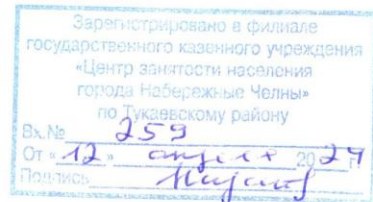 Зарегистрировано в филиале
государственного казенного учреждения
«Центр занятости населения
города Набережные Челны»
по Тукаевскому району
Вх.№ 259
От «12» апреля 2024 г.
Подпись